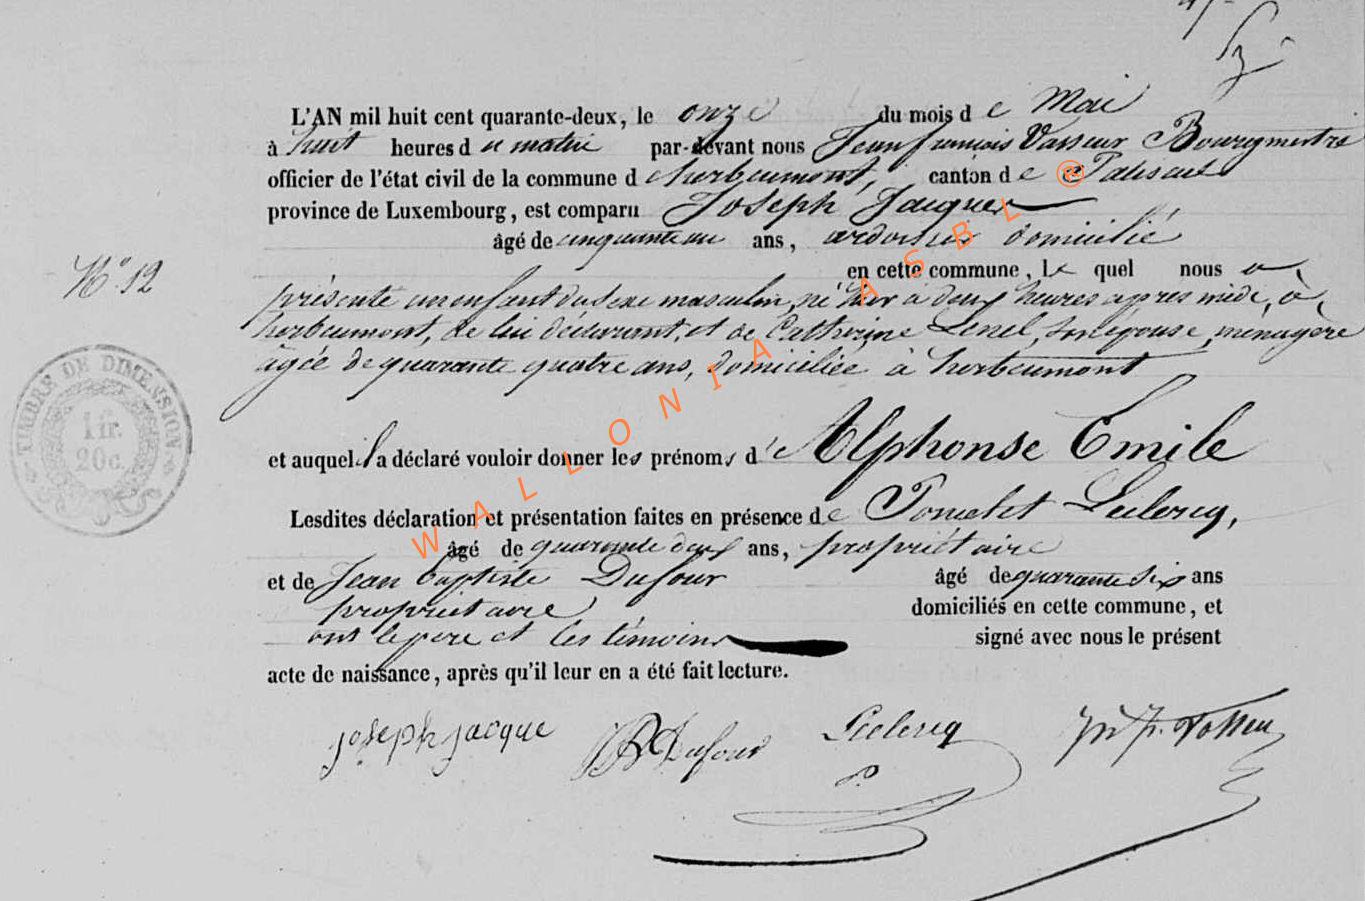 L'AN mil huit cent quarante-deux, le onze du mois de Mai
à huit heures du matin par-devant nous Jean françois Bourgmestre
officier de l'état civil de la commune d'herbeumont, canton de Paliseul
province de Luxembourg, est comparu Joseph Jacques
âgé de cinquante un ans, ardoisier domicilié
N° 12
en cette commune, Le quel nous a
présenté un enfant du sexe masculin, né hier à deux heures après midi, à
herbeumont, de lui déclarant, et de Catherine son épouse, ménagère
âgée de quarante quatre ans, domiciliée à herbeumont
TIMBRE DE DIMENSION
1 fr.
20 c.
et auquel il a déclaré vouloir donner les prénoms d'Alphonse Emile
Lesdites déclaration et présentation faites en présence de Leclercq,
âgé de quarante deux ans, propriétaire
et de Jean baptiste Dufour âgé de quarante six ans
propriétaire domiciliés en cette commune, et
ont le père et les témoins signé avec nous le présent
acte de naissance, après qu'il leur en a été fait lecture.
joseph jacque Dufour Leclercq
WALLONIA ASBL ®